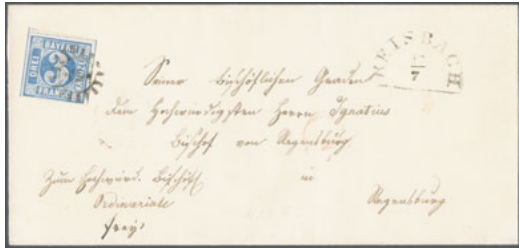 BAYERN
DREI
3
FRANCO
REISBACH
Seiner bischöflichen Gnaden
dem Hochwürdigsten Herrn Ignatius
Bischof von Regensburg
in
Zum Hochwürd. Bischöfl.
Ordinariate
Regensburg
frey